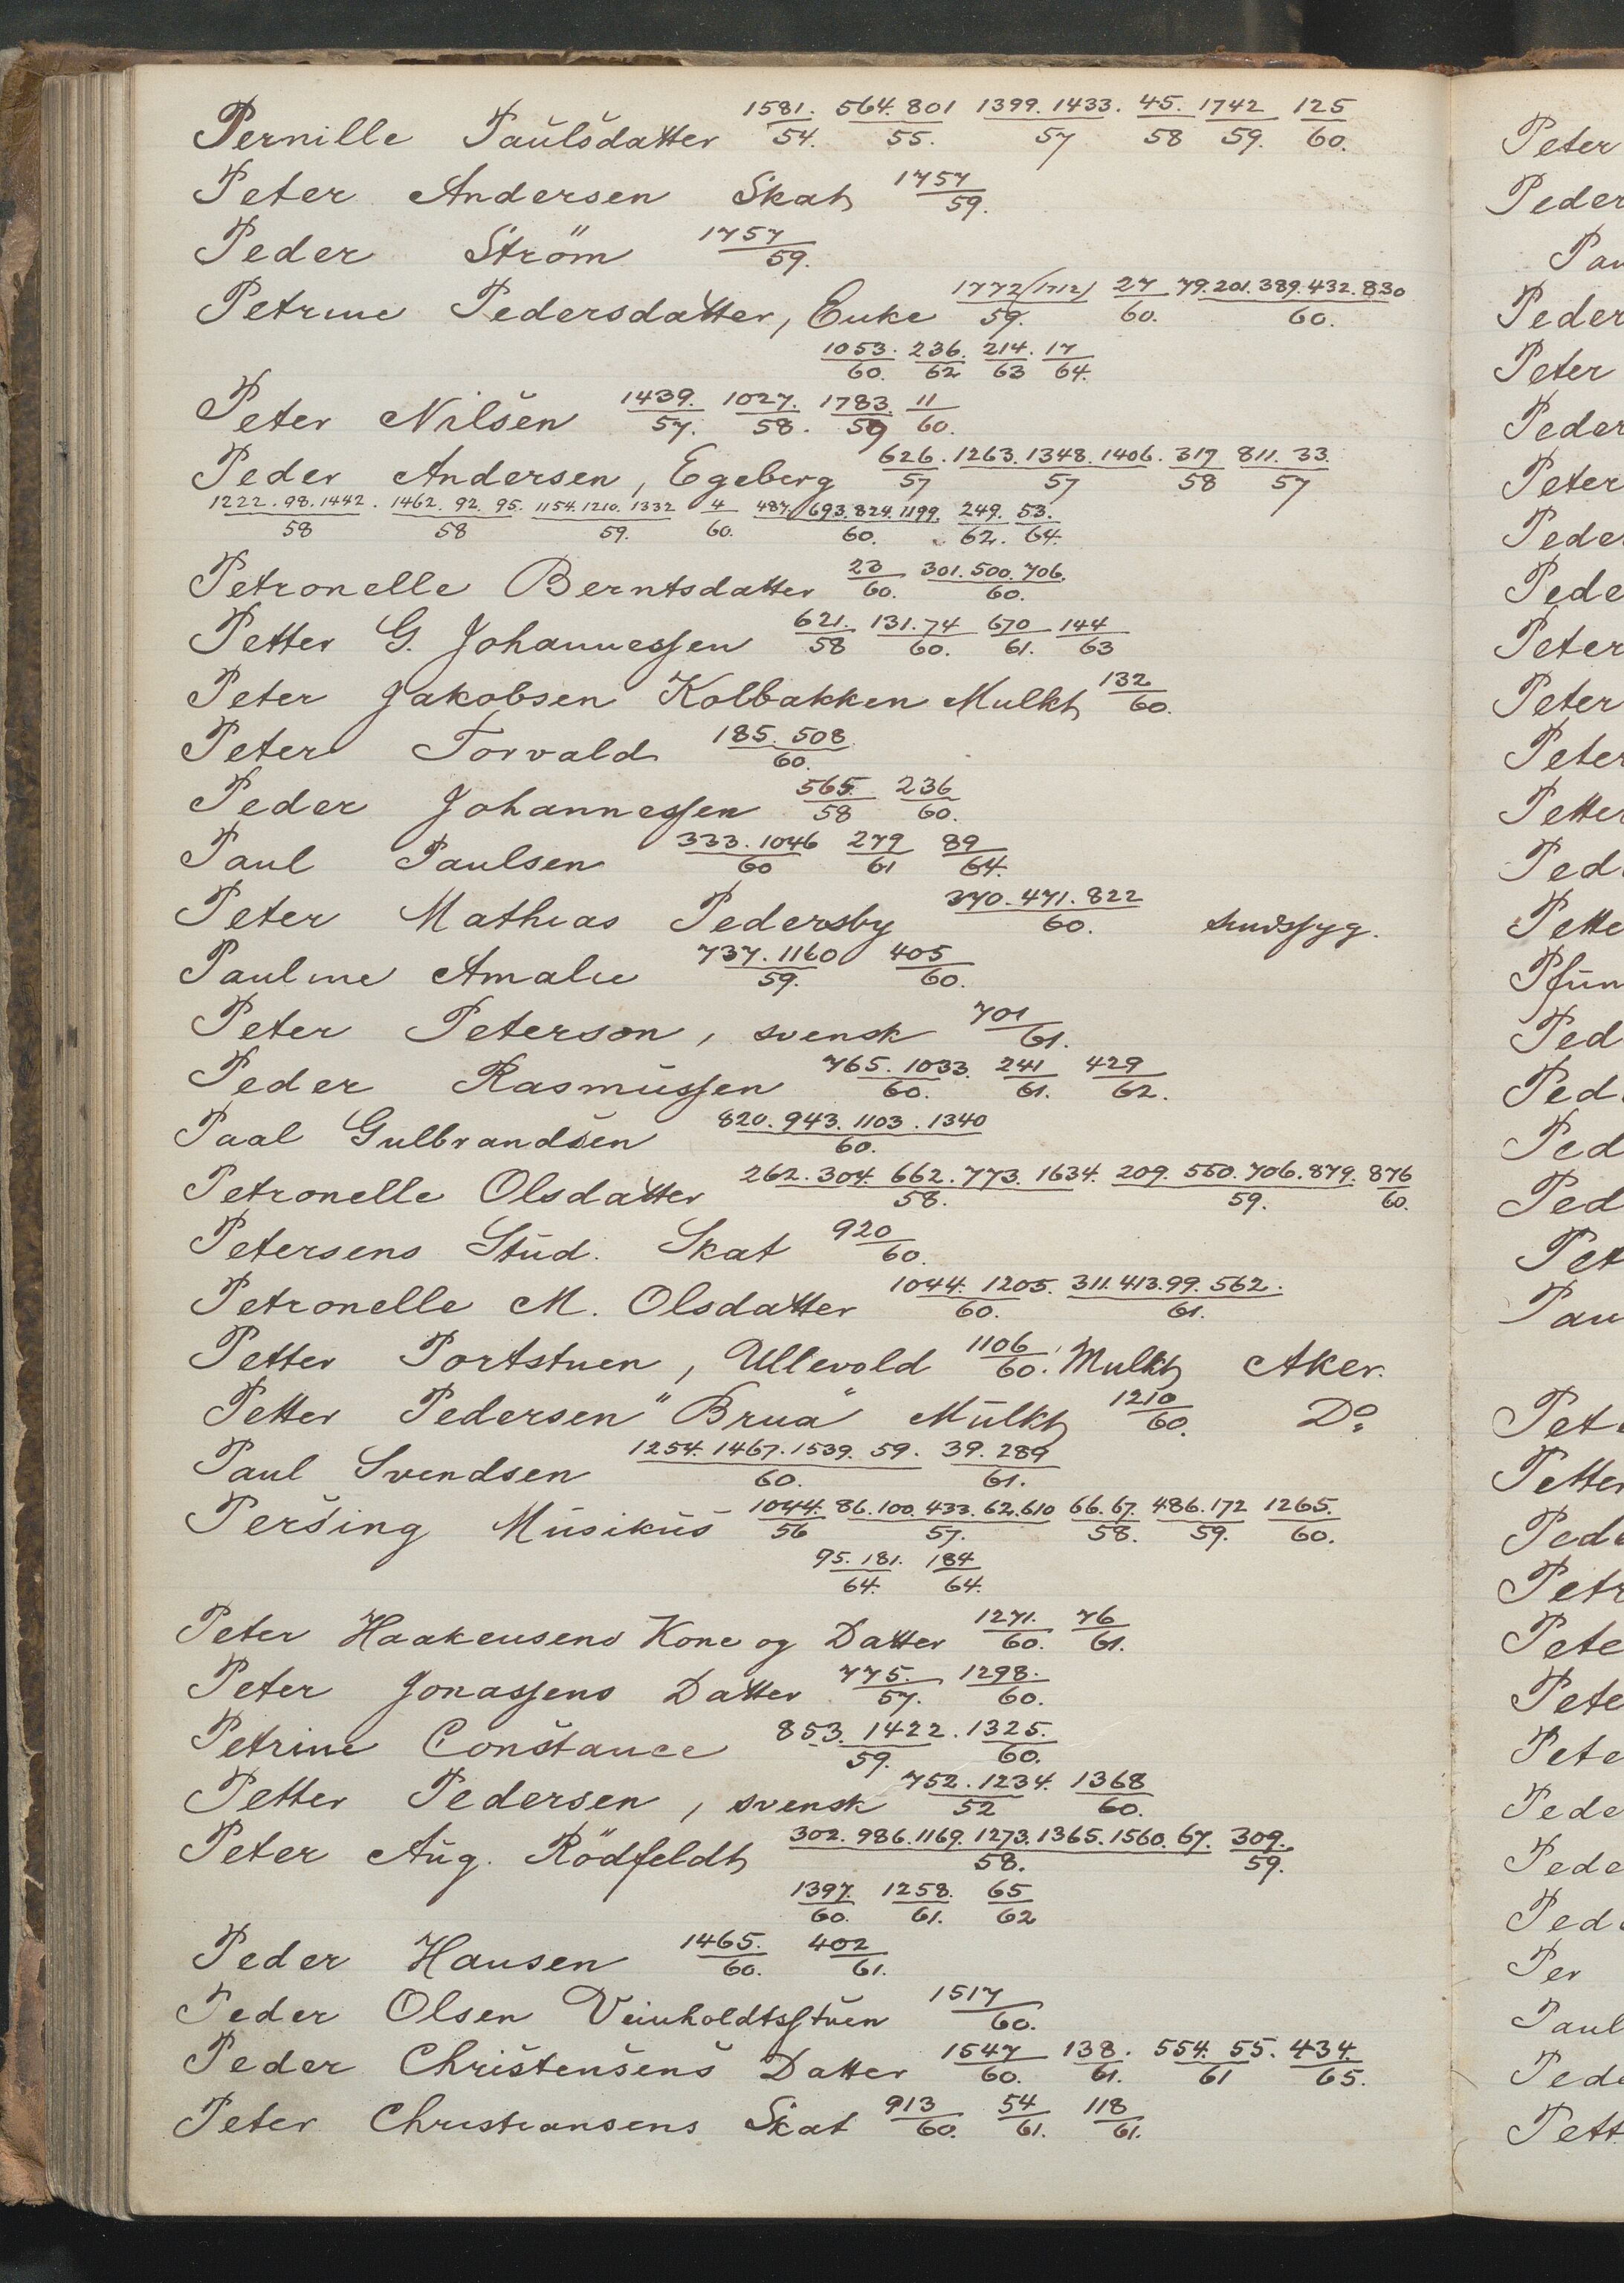 Pernille Paulsdatter 1581./54. 564.801/55. 1399.1433./57 45./58 1742/59. 125/60.
Peter Andersen Skat 1757/59.
Peder Ström 1757/59.
Petrine Pedersdatter, Enke 1772(1712)/59. 27/60. 79.201.389.432.830/60.
1053./60. 236./62 214./63 17/64.
Peter Nilsen 1439./57. 1027./58. 1783./59 11/60.
Peder Andersen, Egeberg 626./57 1263.1348.1406./57 317/58 811.33/57
1222.98.1442./58 1462.92.95./58 1154.1210.1332/59. 4/60. 487.693.824.1199./60. 249./62. 53./64.
Petronelle Berntsdatter 23/60. 301.500.706./60.
Petter G. Johannessen 621./58 131.74/60. 670/61. 144/63
Peter Jakobsen Kolbakken Mulkt 132/60.
Peter Torvald 185.508/60.
Peder Johannessen 565./58 236/60.
Paul Paulsen 333.1046/60 279/61 89/64.
Peter Mathias Pedersby 370.471.822/60.
Pauline Amalie 737.1160/59. 405/60.
Peter Peterson, svensk 701/61.
Peder Rasmussen 765.1033./60. 241/61. 429/62.
Paal Gulbrandsen 820.943.1103.1340/60.
Petronelle Olsdatter 262.304.662.773.1634./58. 209.550.706.879./59. 876/60.
Petersens Stud. Skat 920/60.
Petronelle M. Olsdatter 1044.1205./60. 311.413.99.562./61.
Petter Portstuen, Ullevold 1106/60. Mulkt Aker.
Petter Pedersen "Brua" Mulkt 1210/60. Do.
Paul Svendsen 1254.1467.1539.59./60. 39.289/61.
Persing Musikus 1044./56 86.100.433.62.610/57. 66.67./58. 486.172/59. 1265./60.
95.181./64. 184/64.
Peter Haakensens Kone og Datter 1271./60. 76/61.
Peter Jonassens Datter 775./57. 1298./60.
Petrine Constance 853.1422./59. 1325./60.
Petter Pedersen, svensk 752.1234./52 1368/60.
Peter Aug. Rödfeldt 302.986.1169.1273.1365.1560.67./58. 309./59.
1397./60. 1258./61. 65/62
Peder Hansen 1465./60. 402/61.
Peder Olsen Veinholdtsstuen 1517/60.
Peder Christensens Datter 1547/60. 138./61. 554.55./61 434./65.
Peter Christiansens Skat 913/60. 54/61. 118/61.